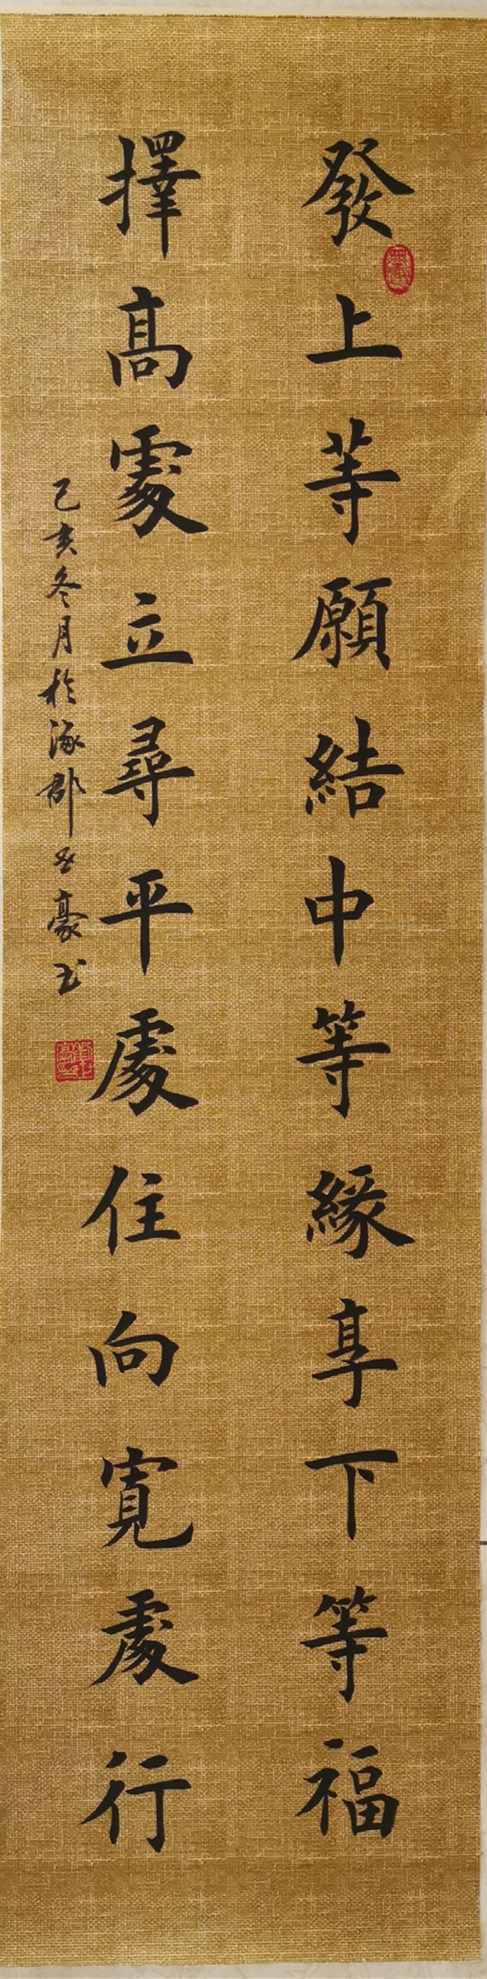 發上等願結中等緣享下等福
擇高處立尋平處住向寬處行
己亥冬月於涿郡 豪书